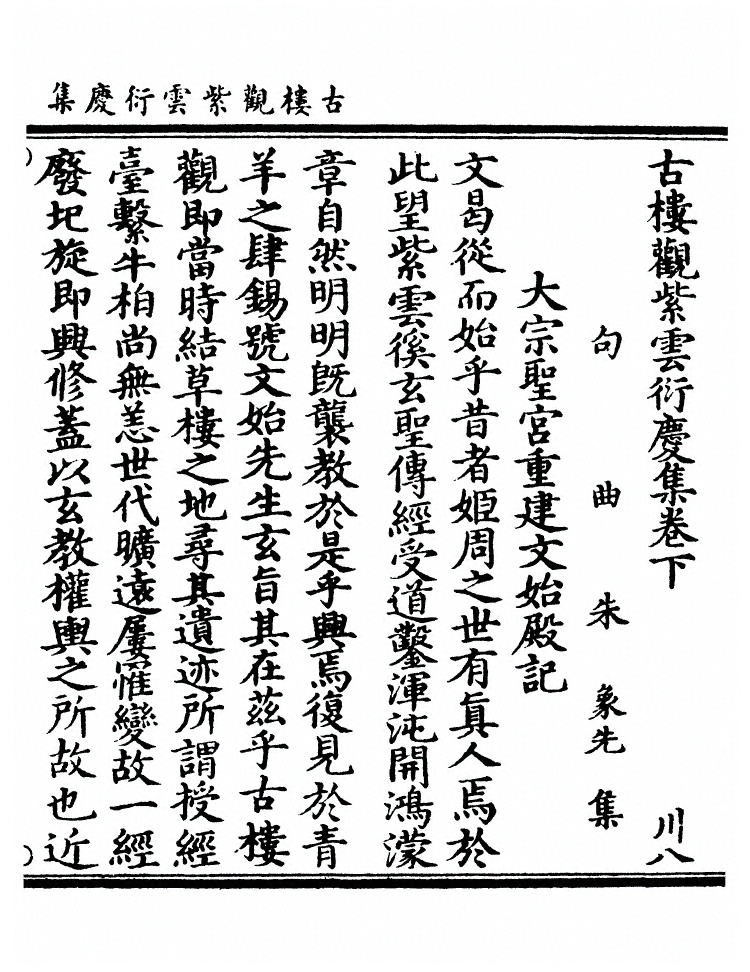 古樓觀紫雲衍慶集
古樓觀紫雲衍慶集卷下 川八
句曲朱象先集
大宗聖宮重建文始殿記
文曷從而始乎昔者姬周之世有真人焉於
此望紫雲徯玄聖傳經受道鑿渾沌開鴻濛
章自然明明既襲教於是乎興焉復見於青
羊之肆錫號文始先生玄旨其在茲乎古樓
觀即當時結草樓之地尋其遺迹所謂授經
臺繫牛柏尚無恙世代曠遠屢罹變故一經
廢圮旋即興修蓋以玄教權輿之所故也近